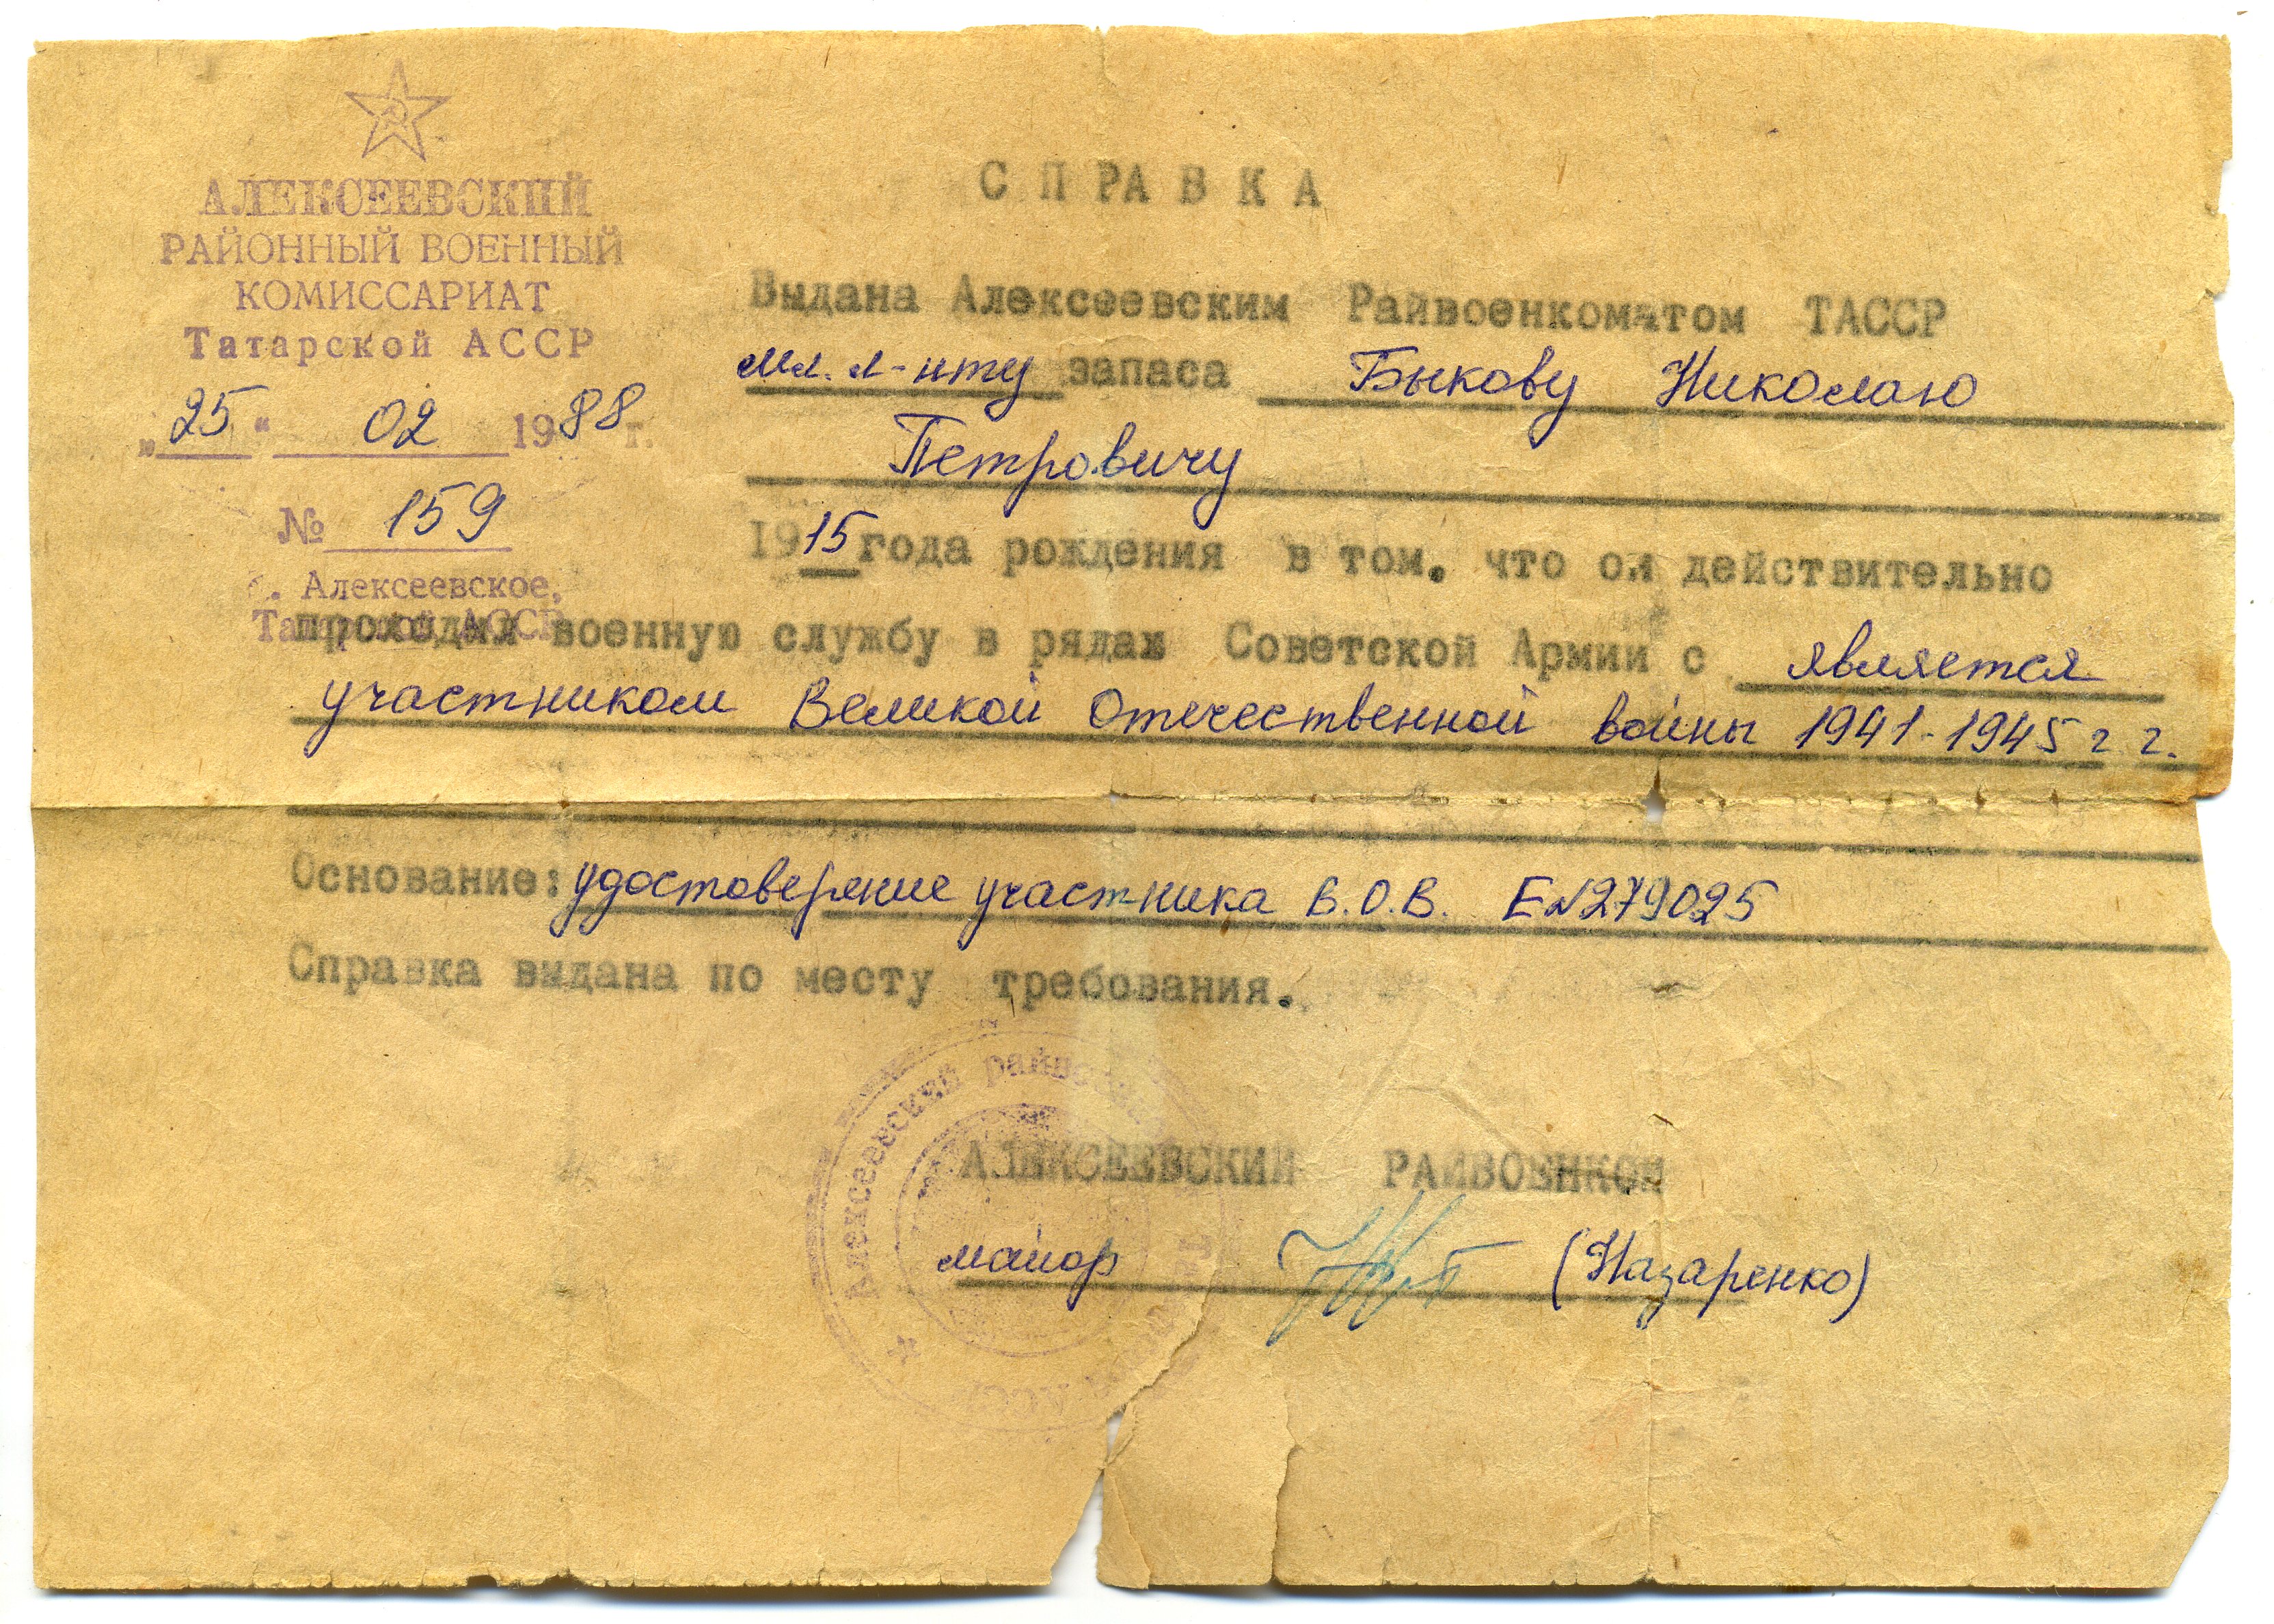 АЛЕКСЕЕВСКИЙ
РАЙОННЫЙ ВОЕННЫЙ
КОМИССАРИАТ
Татарской АССР
„25“ 02 1988 г.
№ 159
с. Алексеевское,
Татарской АССР
СПРАВКА
Выдана Алексеевским Райвоенкоматом ТАССР
мл. л-нту запаса Быкову Николаю
Петровичу
1915 года рождения в том, что он действительно
проходил военную службу в рядах Советской Армии с является
участником Великой Отечественной войны 1941-1945 г г.
Основание: удостоверение участника В.О.В. Е №279025
Справка выдана по месту требования.
АЛЕКСЕЕВСКИЙ РАЙВОЕНКОМ
майор (Назаренко)
Алексеевский
АССР